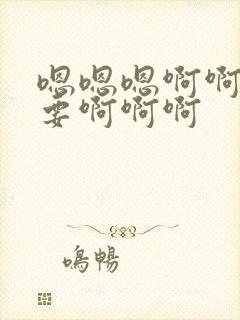 嗯嗯嗯啊啊
要啊啊啊
鳴暢